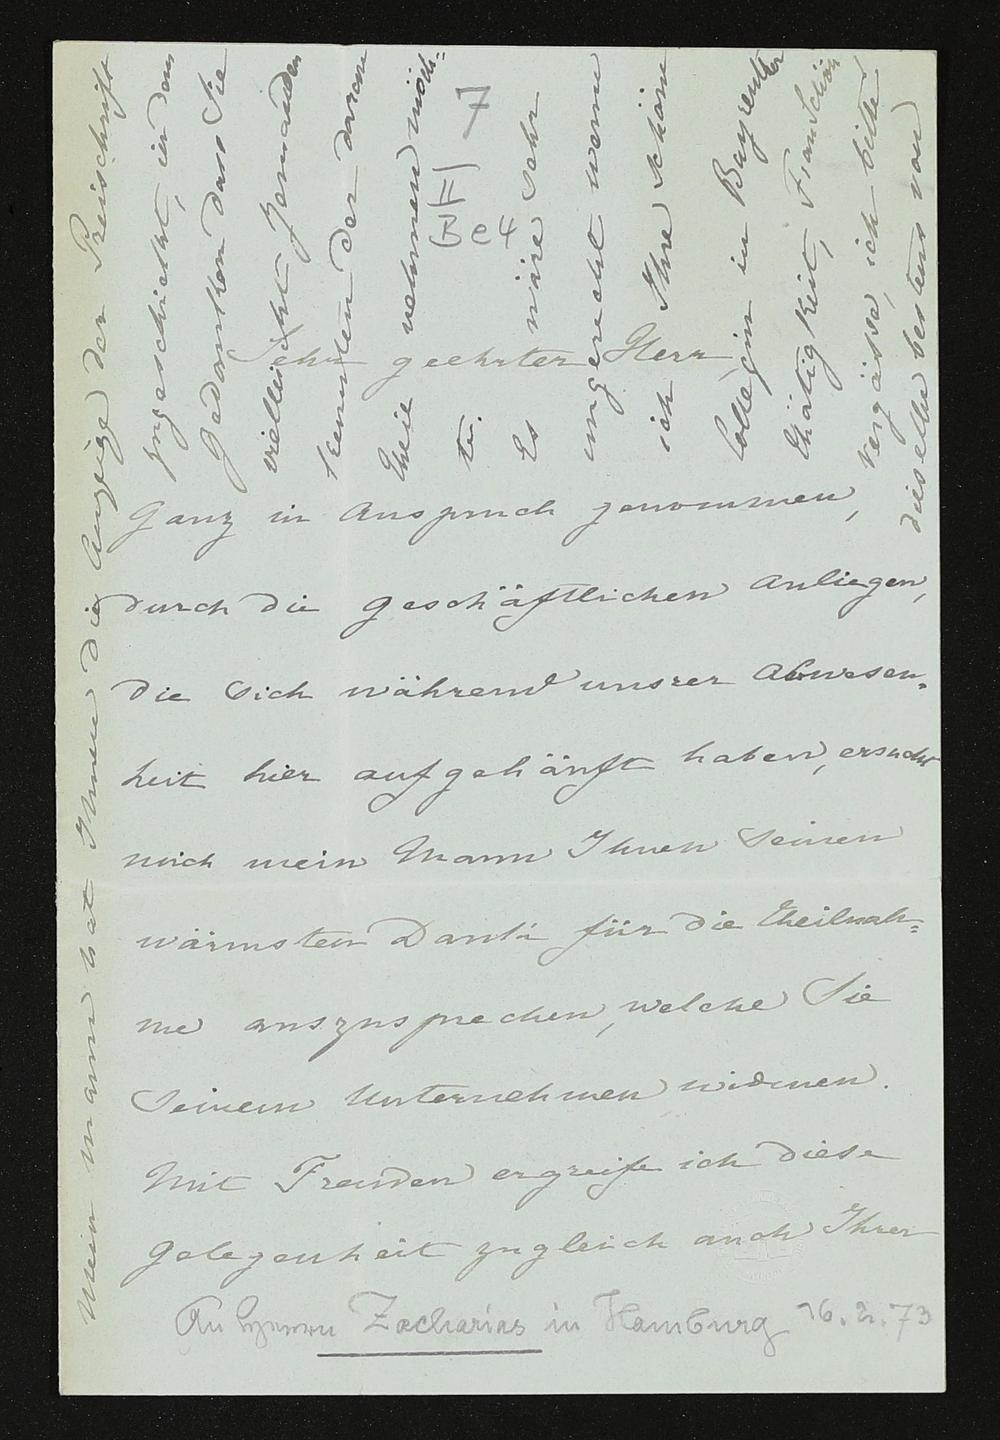 7
F1
Be4
Sehr geehrter Herr,
Ganz in Anspruch genommen,
durch die geschäftlichen Anliegen,
die sich während unsrer Abwesen-
heit hier aufgehäuft haben, ersucht
mich mein Mann Ihnen seinen
wärmsten Dank für die Theilnah-
me auszusprechen, welche Sie
seinem Unternehmen widmen.
Mit Freuden ergreife ich diese
Gelegenheit zugleich auch Ihrer
An Herrn Zacharias in Hamburg 16.2.73
Mein Mann hat Ihnen die Anzeige der Preisschrift
zugeschickt, in dem
Gedanken dass Sie
vielleicht Jemanden
kennten der daran
Theil nehmen möch-
te.
Es wäre sehr
ungerecht wenn
ich Ihre schöne
Collegin in Bayreuther
Thätigkeit, Frau Schön
vergässe, ich bitte
dieselbe bestens von